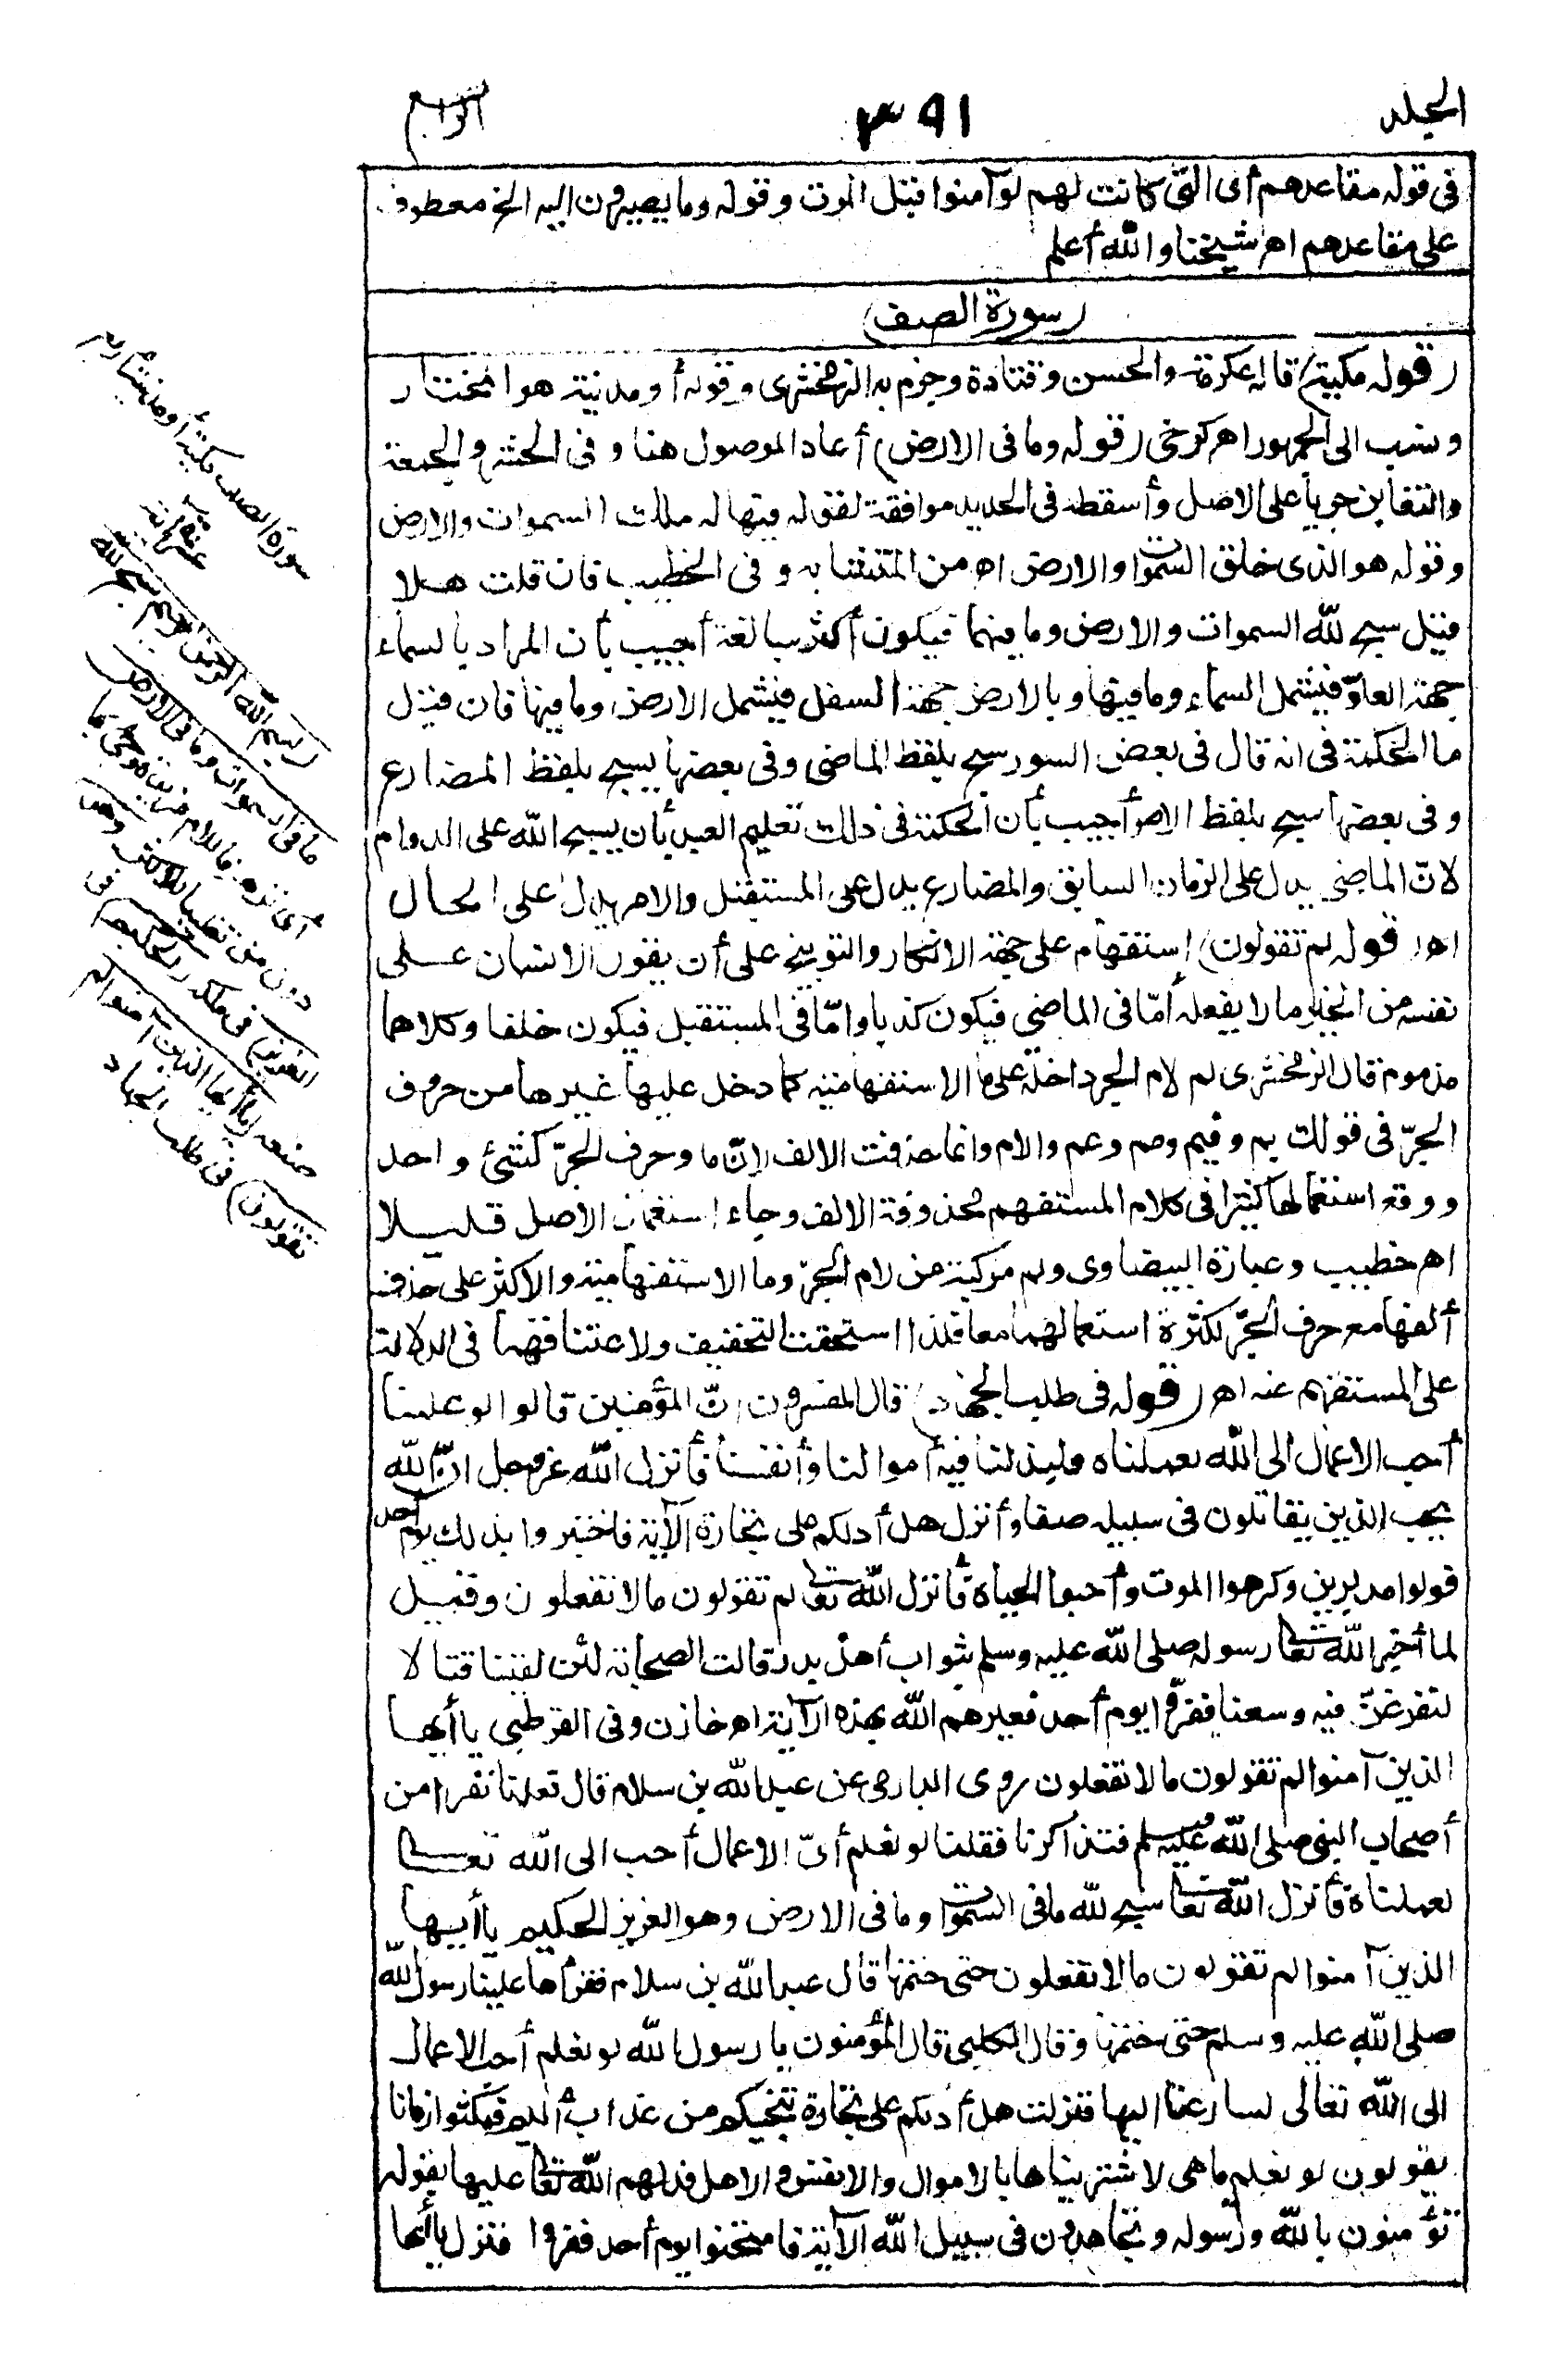 الجلد
٣٩١
الرابع
فى قوله مقاعدهم أى التى كانت لهم لو آمنوا قبل الموت وقوله وما يصيرون اليه الخ معطوف
على مقاعدهم اه شيخنا والله أعلم
(سورة الصف)
(قوله مكية) قاله عكرمة والحسن وقتادة وجزم به الزمخشرى وقوله أو مدنية هو المختار
ونسب الى الجمهور اه كرخى (قوله وما فى الارض) أعاد الموصول هنا وفى الحشر والجمعة
والتغابن جريا على الاصل وأسقطه فى الحديد موافقة لقوله فيها له ملك السموات والارض
وقوله هو الذى خلق السموات والارض اه من المتشابه وفى الخطيب فان قلت هلا
قيل سبح لله السموات والارض وما فيهما فيكون أكثر مبالغة أجيب بأن المراد بالسماء
جهة العلو فيشمل السماء وما فيها وبالارض جهة السفل فيشمل الارض وما فيها فان قيل
ما الحكمة فى انه قال فى بعض السور سبح بلفظ الماضى وفى بعضها يسبح بلفظ المضارع
وفى بعضها سبح بلفظ الامر أجيب بأن الحكمة فى ذلك تعليم العبد أن يسبح الله على الدوام
لانّ الماضى يدل على الزمان السابق والمضارع يدل على المستقبل والامر يدل على الحال
اه (قوله لم تقولون) استفهام على جهة الانكار والتوبيخ على أن يقول الانسان على
نفسه من الخير ما لا يفعله أمّا فى الماضى فيكون كذبا وامّا فى المستقبل فيكون خلفا وكلاهما
مذموم قال الزمخشرى لم لام الجر داخلة على ما الاستفهامية كما دخل عليها غيرها من حروف
الجرّ فى قولك بم وفيم ومم وعم والام وانما حذفت الالف لانّ ما وحرف الجرّ كشئ واحد
ووقع استعمالها كثيرا فى كلام المستفهم محذوفة الالف وجاء استعمال الاصل قليلا
اه خطيب وعبارة البيضاوى ولم مركبة من لام الجرّ وما الاستفهامية والاكثر على حذف
ألفها مع حرف الجرّ لكثرة استعمالهما معا فلذا استحقت التخفيف ولاعتناقهما فى الدلالة
على المستفهم عنه اه (قوله فى طلب الجهاد) قال المفسرون انّ المؤمنين قالوا لو علمنا
أحب الاعمال الى الله لعملناه ولبذلنا فيه أموالنا وأنفسنا فأنزل الله عز وجل انّ الله
يحب الذين يقاتلون فى سبيله صفا وأنزل هل أدلكم على تجارة الآية فاختبروا بذلك يوم أحد
فولوا مدبرين وكرهوا الموت وأحبوا الحياة فأنزل الله تعالى لم تقولون ما لا تفعلون وقيل
لما أخبر الله تعالى رسوله صلى الله عليه وسلم بثواب أهل بدر قالت الصحابة لئن لقينا قتالا
لنفرغنّ فيه وسعنا ففرّوا يوم أحد فعيرهم الله بهذه الآية اه خازن وفى القرطبى يا أيها
الذين آمنوا لم تقولون ما لا تفعلون روى الدارمى عن عبد الله بن سلام قال قعدنا نفرا من
أصحاب النبى صلى الله عليه وسلم فتذاكرنا فقلنا لو نعلم أىّ الاعمال أحب الى الله تعالى
لعملناه فأنزل الله تعالى سبح لله ما فى السموات وما فى الارض وهو العزيز الحكيم يا أيها
الذين آمنوا لم تقولون ما لا تفعلون حتى ختمها قال عبد الله بن سلام فقرأها علينا رسول الله
صلى الله عليه وسلم حتى ختمها وقال الكلبى قال المؤمنون يا رسول الله لو نعلم أحب الاعمال
الى الله تعالى لسارعنا اليها فنزلت هل أدلكم على تجارة تنجيكم من عذاب أليم فمكثوا زمانا
يقولون لو نعلم ما هى لاشتريناها بالاموال والانفس والاهل فدلهم الله تعالى عليها بقوله
تؤمنون بالله ورسوله وتجاهدون فى سبيل الله الآية فامتحنوا يوم أحد ففروا فنزل يا أيها
سورة الصف مكية أو مدنية أربع
عشرة آية
(بسم الله الرحمن الرحيم سبح لله
ما فى السموات وما فى الارض)
أى نزهه فاللام مزيدة وجئ بما
دون من تغليبا للاكثر (وهو
العزيز) فى ملكه (الحكيم) فى
صنعه (يا أيها الذين آمنوا لم
تقولون) فى طلب الجهاد